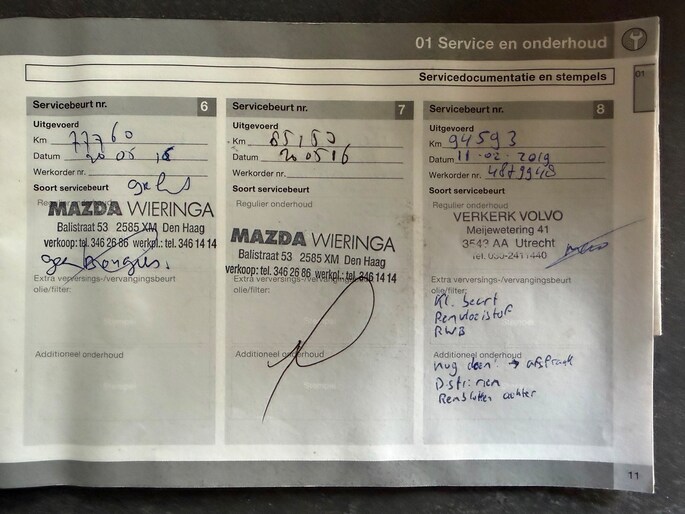 01 Service en onderhoud
01
Servicedocumentatie en stempels
Servicebeurt nr. 6
Uitgevoerd
Km 77760
Datum
Werkorder nr.
Soort servicebeurt
MAZDA WIERINGA
Balistraat 53 2585 XM Den Haag
verkoop: tel. 346 26 86 werkpl.: tel. 346 14 14
Extra verversings-/vervangingsbeurt
olie/filter:
Additioneel onderhoud
Servicebeurt nr. 7
Uitgevoerd
Km
Datum 20 05 16
Werkorder nr.
Soort servicebeurt
Regulier onderhoud
MAZDA WIERINGA
Balistraat 53 2585 XM Den Haag
verkoop: tel. 346 26 86 werkpl.: tel. 346 14 14
Extra verversings-/vervangingsbeurt
olie/filter:
Additioneel onderhoud
Servicebeurt nr. 8
Uitgevoerd
Km 94593
Datum 11-02-2019
Werkorder nr. 4879948
Soort servicebeurt
Regulier onderhoud
VERKERK VOLVO
Meijewetering 41
3543 AA Utrecht
Tel. 030-2411440
Extra verversings-/vervangingsbeurt
olie/filter:
Kl. beurt
Remvloeistof
RWB
Additioneel onderhoud
nog doen: → afspraak
Distr. riem
Remschijven achter
11